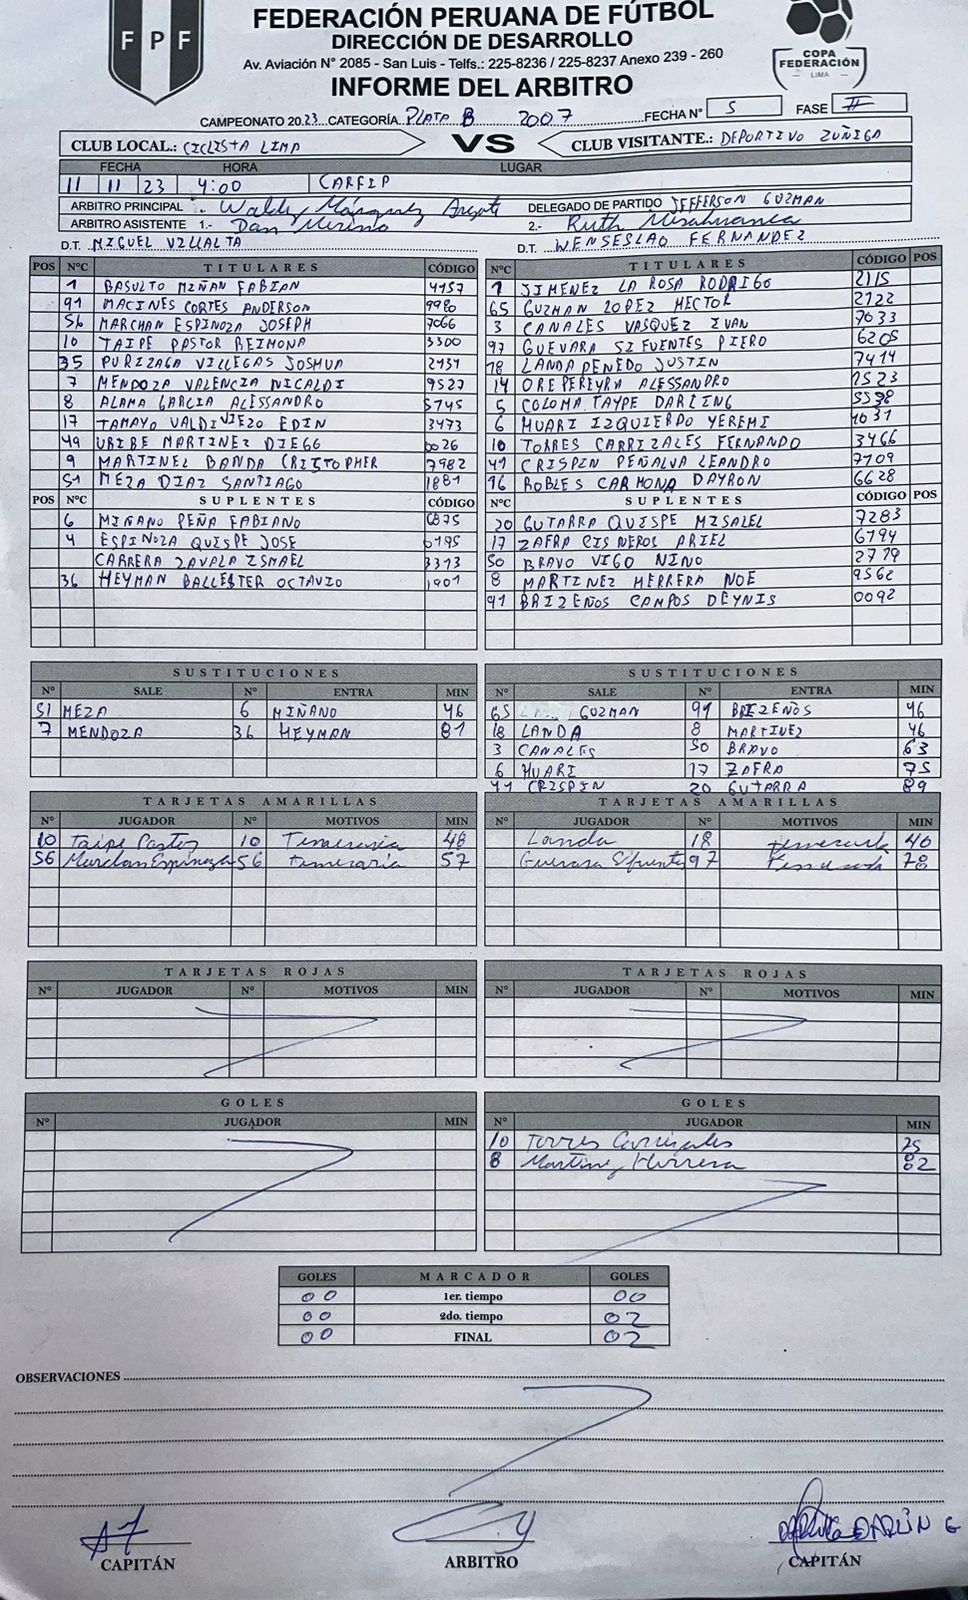 FPF
FEDERACIÓN PERUANA DE FÚTBOL
DIRECCIÓN DE DESARROLLO
Av. Aviación N° 2085 - San Luis - Telfs.: 225-8236 / 225-8237 Anexo 239 - 260
INFORME DEL ARBITRO
COPA FEDERACIÓN LIMA
CAMPEONATO 2023 CATEGORÍA PLATA B 2007 FECHA N° 5 FASE II
CLUB LOCAL.: CICLISTA LIMA VS CLUB VISITANTE.: DEPORTIVO ZUÑIGA
FECHA HORA LUGAR
11 11 23 4:00 CAREIP
ARBITRO PRINCIPAL DELEGADO DE PARTIDO JEFFERSON GUZMAN
ARBITRO ASISTENTE 1.- Dan Merino 2.- Ruth
D.T. MIGUEL VILLALTA D.T. WENSESLAO FERNANDEZ
POS N°C TITULARES CÓDIGO N°C TITULARES CÓDIGO POS
1 BASULTO MIÑAN FABIAN 4157 1 JIMENEZ LA ROSA RODRIGO 2115
91 MACINES CORTES ANDERSON 9980 65 GUZMAN LOPEZ HECTOR 2122
56 MARCHAN ESPINOZA JOSEPH 7066 3 CANALES VASQUEZ IVAN 7033
10 TAIPE PASTOR REIMONA 3300 97 GUEVARA SIFUENTES PIERO 6205
35 PURIZAGA VILLEGAS JOSHUA 2434 18 LANDA PENEDO JUSTIN 7414
7 MENDOZA VALENCIA NICALDI 9527 14 ORE PEREYRA ALESSANDRO 1523
8 ALAMA GARCIA ALESSANDRO 5745 5 COLOMA TAYPE DARLING 5598
17 TAMAYO VALDIVIEZO EDIN 3473 6 HUARI IZQUIERDO YEREMI 4031
49 URIBE MARTINEZ DIEGO 0026 10 TORRES CARRIZALES FERNANDO 3466
9 MARTINEL BANDA CRISTOPHER 7982 41 CRISPIN PEÑALVA LEANDRO 7109
51 MEZA DIAZ SANTIAGO 1881 16 ROBLES CARMONA DAYRON 6628
POS N°C SUPLENTES CÓDIGO N°C SUPLENTES CÓDIGO POS
6 MIÑANO PEÑA FABIANO 6875 20 GUTARRA QUISPE MISALEL 7283
4 ESPINOZA QUISPE JOSE 6195 17 ZAFRA CISNEROS ARIEL 6794
CARRERA ZAVALA ISMAEL 3373 50 BRAVO VIGO NINO 2779
36 HEYMAN BALLESTER OCTAVIO 1901 8 MARTINEZ HERRERA NOE 9562
91 BRIZEÑOS CAMPOS DEYNIS 0092
SUSTITUCIONES SUSTITUCIONES
N° SALE N° ENTRA MIN N° SALE N° ENTRA MIN
51 MEZA 6 MIÑANO 46 65 GUZMAN 91 BRIZEÑOS 46
7 MENDOZA 36 HEYMAN 81 18 LANDA 8 MARTINEZ 46
3 CANALES 50 BRAVO 63
6 HUARI 17 ZAFRA 75
41 CRISPIN 20 GUTARRA 89
TARJETAS AMARILLAS TARJETAS AMARILLAS
JUGADOR N° MOTIVOS MIN JUGADOR N° MOTIVOS MIN
10 Taipe Pastor 10 Temeraria 48 Landa 18 40
56 Marchan Espinoza 56 temeraria 57 Guevara Sifuentes 97 78
TARJETAS ROJAS TARJETAS ROJAS
N° JUGADOR N° MOTIVOS MIN N° JUGADOR N° MOTIVOS MIN
GOLES GOLES
N° JUGADOR MIN N° JUGADOR MIN
10 Torres Carrizales
8 Martinez Herrera 82
GOLES MARCADOR GOLES
00 1er. tiempo 00
00 2do. tiempo 02
00 FINAL 02
OBSERVACIONES
CAPITÁN ARBITRO CAPITÁN